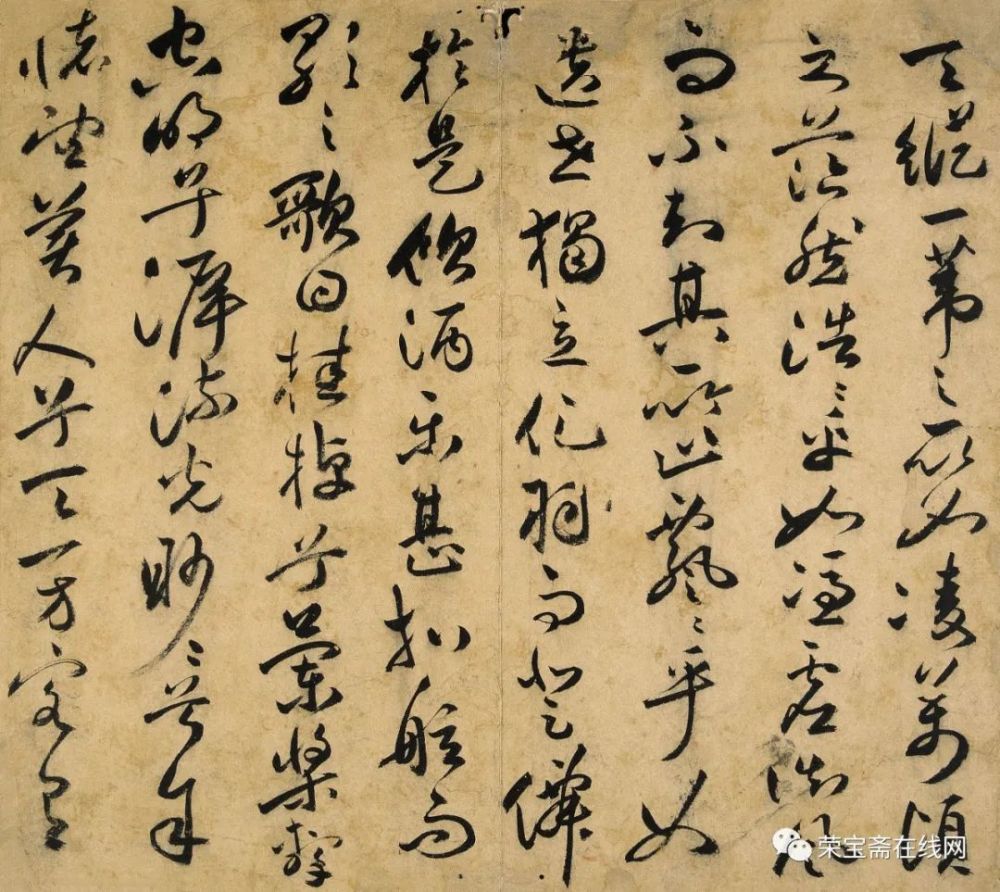 天縱一葦之所如凌萬頃
之茫然浩々乎如馮虛御風
而不知其所止飄々乎如
遺世獨立化羽而登僊
於是飲酒樂甚扣舷而
歌之歌曰桂棹兮蘭槳擊
空明兮泝流光眇々兮余
懷望美人兮天一方客有
荣宝斋在线网